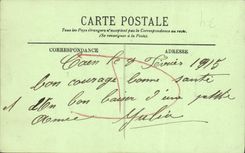 CARTE POSTALE
Tous les Pays étrangers n'acceptent pas la Correspondance au recto.
(Se renseigner à la Poste).
CORRESPONDANCE ADRESSE
Caen le 9 Février 1915
bon courage bonne santé
et Un bon baiser d'une petite
Amie Julia